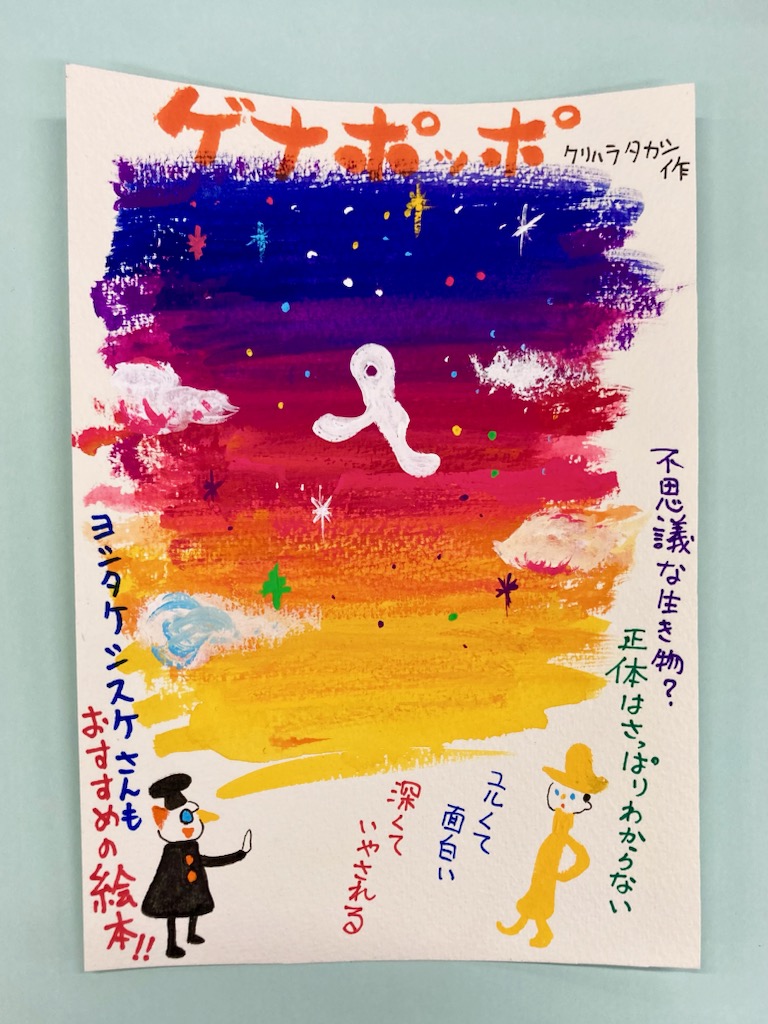 ゲナポッポ
クリハラタカシ
作
不思議な生き物?
正体はさっぱりわからない
ユルくて
面白い
深くて
いやされる
ヨシタケシスケさんも
おすすめの絵本!!